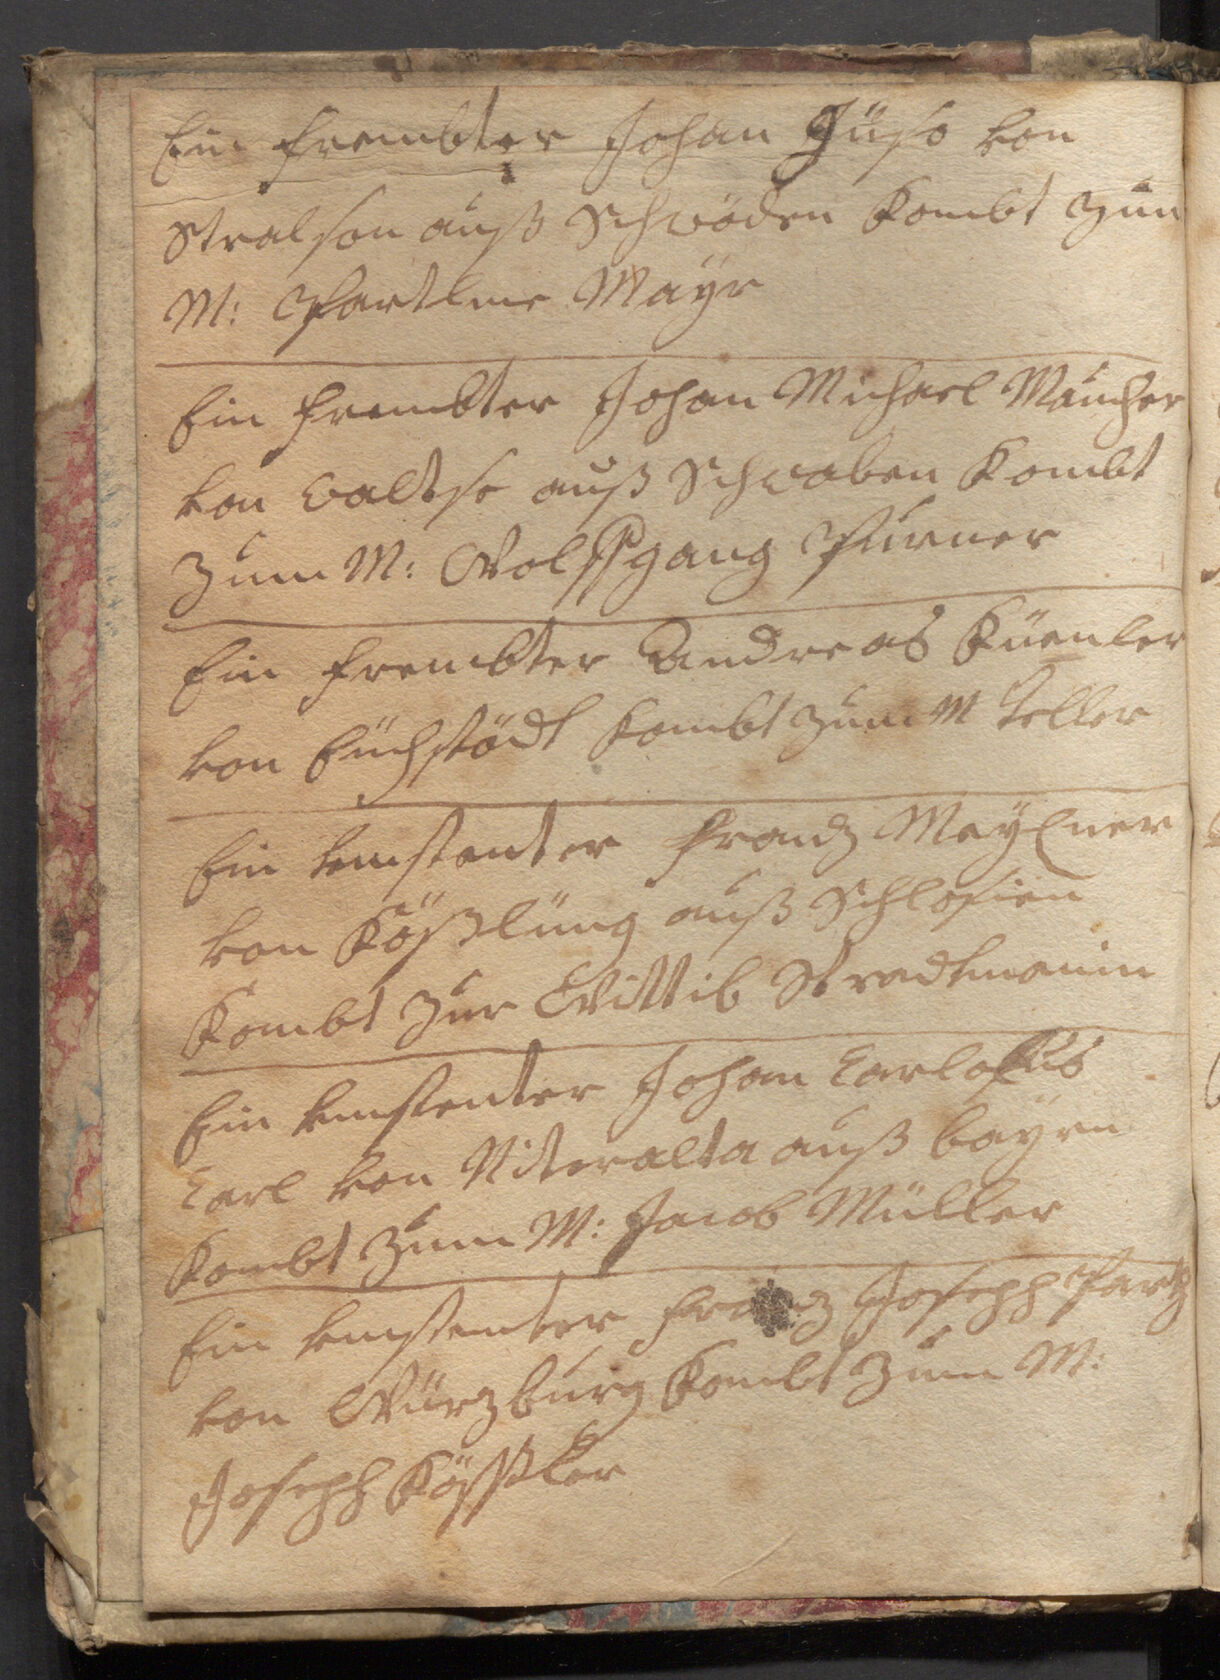 Ein frembter Johan Jüße von
Stralson auß Schwöden kombt zum
M: Partlme Mayr
Ein frembter Johan Michael Maucher
von Valdse auß Schwaben kombt
zum M: Wolffgang Purner
Ein frembter Andreas Küenler
von Eüchstödt kombt zum M Teller
Ein  Frandz Meyxner
von Kößlüng auß Schlesien
kombt zur Wittib Stradtmanin
Ein  Johan Carlo
Carl von Nideralta auß bayrn
kombt zum M: Jacob Müller
Ein  Frandz Joseph
von Würzburg kombt zum M:
Joseph Kössler